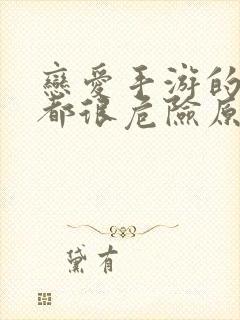 戀愛手游的
都很危險原
黛有